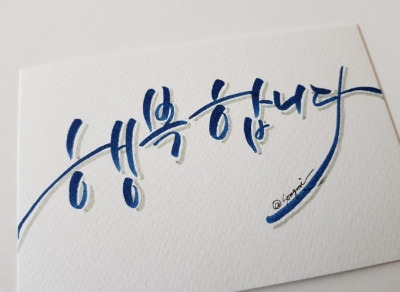 행복합니다